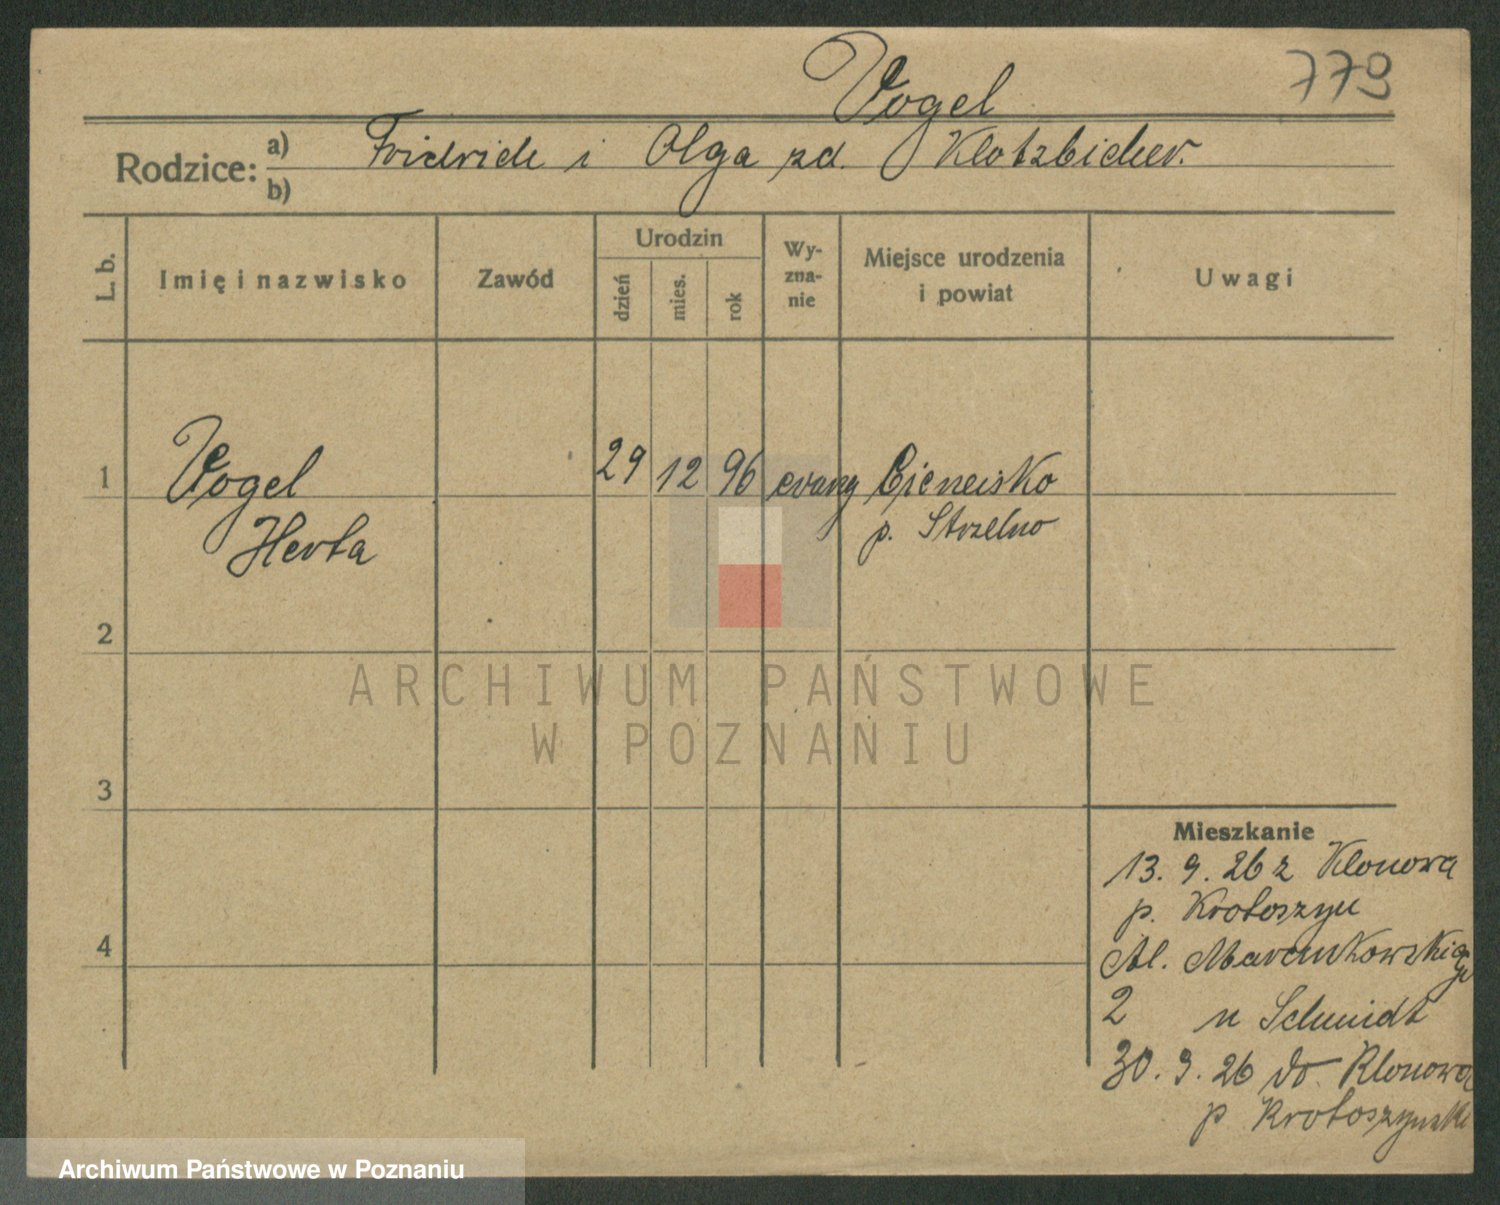 Vogel
779
Rodzice: a) Fridrich i Olga zd. Klotzbicher.
b)
L. b.
Imię i nazwisko
Zawód
Urodzin
dzień
mies.
rok
Wy-
zna-
nie
Miejsce urodzenia
i powiat
Uwagi
1 Vogel 29 12 96 evang
Herta p. Strzelno
2
3
4
Mieszkanie
13. 9. 26 z Klonowa
p. Krotoszyn
2 u Schmidt
30. 9. 26 do Klonowa
p Krotoszynski
ARCHIWUM PAŃSTWOWE
W POZNANIU
Archiwum Państwowe w Poznaniu